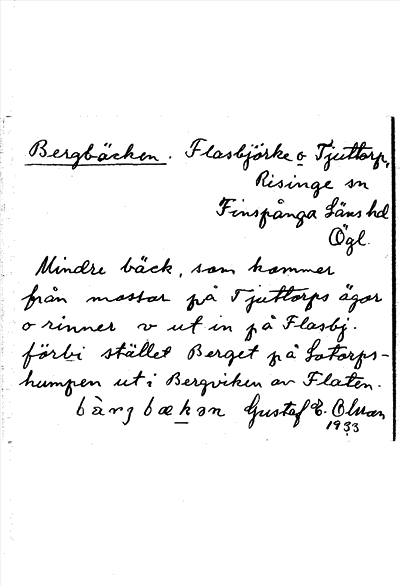 Bergbäcken. Flasbjörke o Tjuttorp,
Risinge sn
Finspånga Läns hd
Ögl.
Mindre bäck, som kommer
från mossar på Tjuttorps ägor
o rinner v ut in på Flasbj.
förbi stället Berget på Lotorps-
humpen ut i Bergviken av Flaten.
bàrjbækən Gustaf E. Olsson
1933